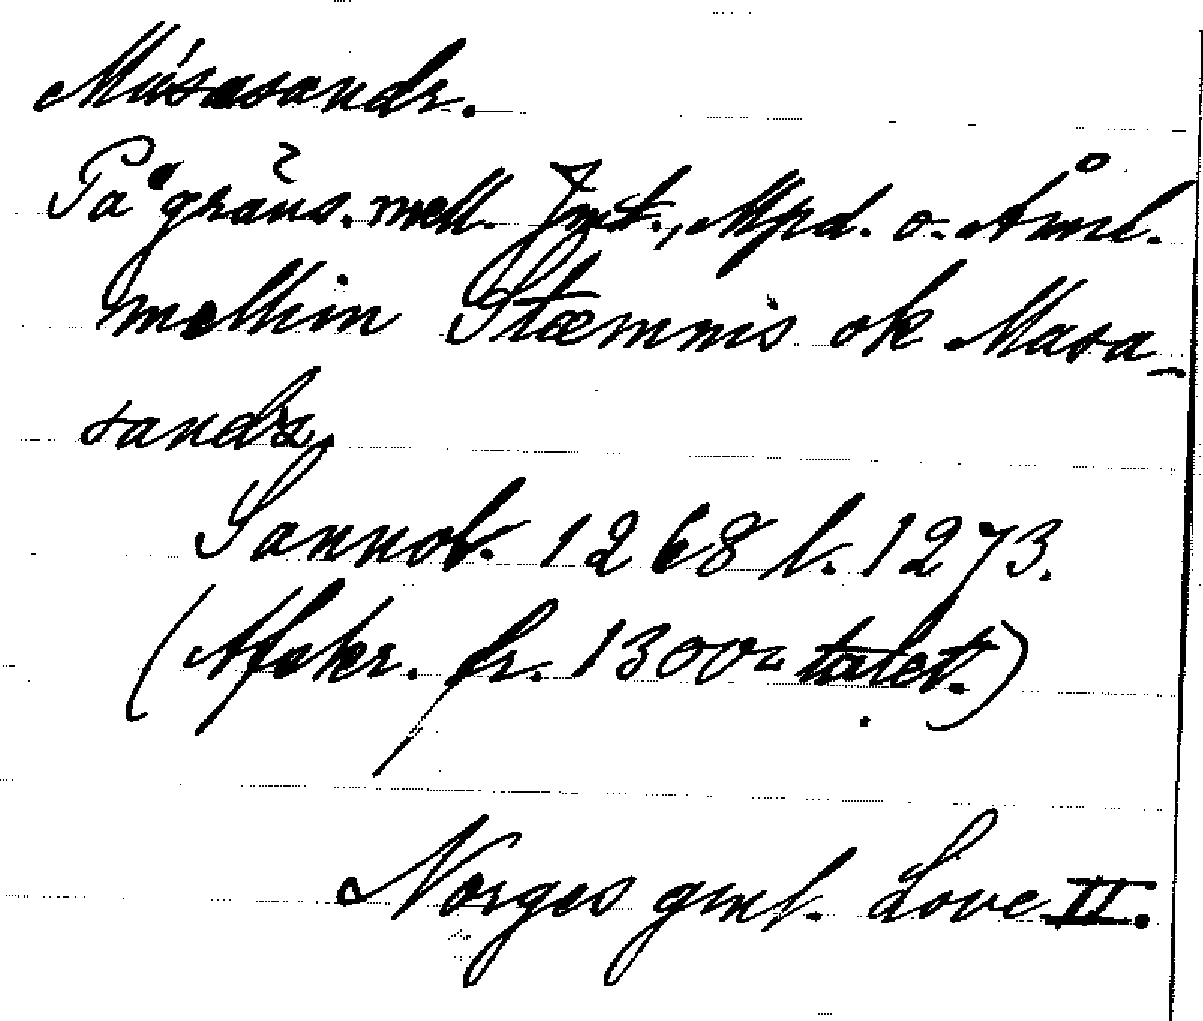 Músasandr.
På gräns. mell. Jmt., Mpd. o. Ånml.
mellim Stæmnis ok Masa-
sandz.
Sannol. 1268 l. 1273.
(Afskr. fr. 1300-talet.)
Norges gml. Love II.